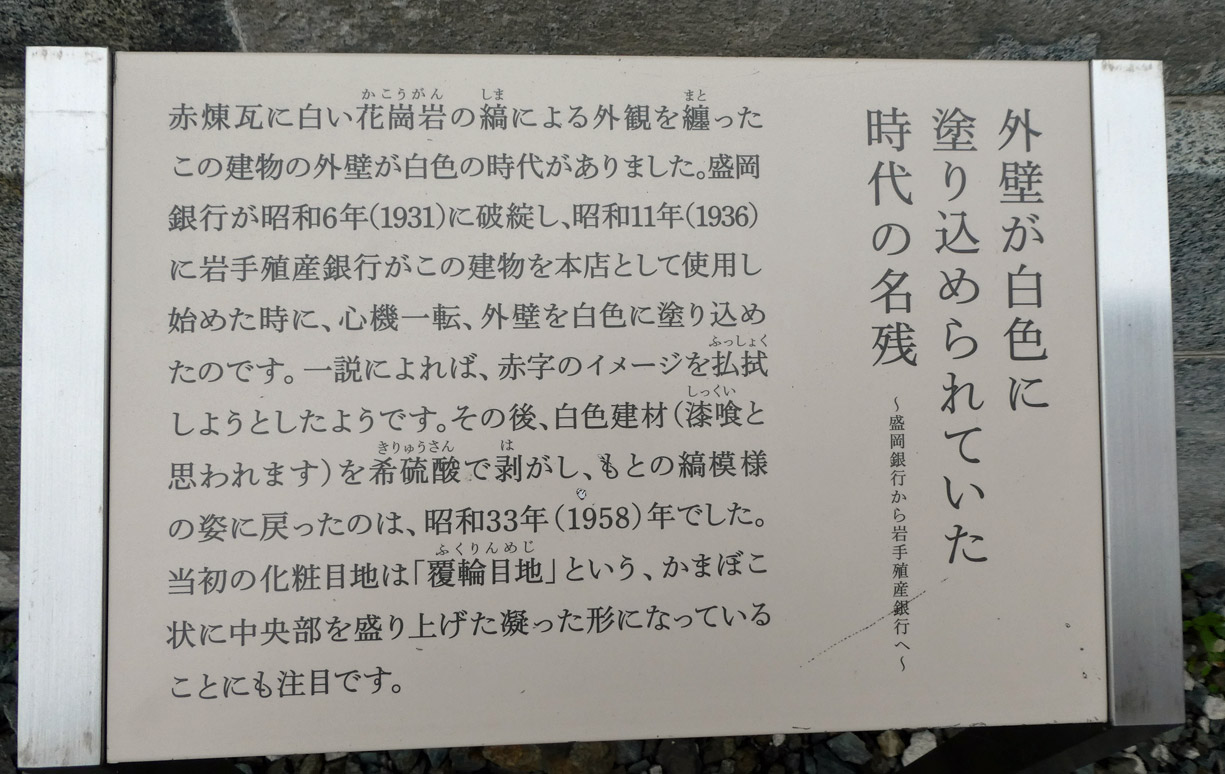 外壁が白色に
塗り込められていた
時代の名残
～盛岡銀行から岩手殖産銀行へ～
かこうがん しま まと
赤煉瓦に白い花崗岩の縞による外観を纏った
この建物の外壁が白色の時代がありました。盛岡
銀行が昭和6年(1931)に破綻し、昭和11年(1936)
に岩手殖産銀行がこの建物を本店として使用し
始めた時に、心機一転、外壁を白色に塗り込め
ふっしょく
たのです。一説によれば、赤字のイメージを払拭
しっくい
しようとしたようです。その後、白色建材(漆喰と
きりゅうさん は
思われます)を希硫酸で剥がし、もとの縞模様
の姿に戻ったのは、昭和33年(1958)年でした。
ふくりんめじ
当初の化粧目地は「覆輪目地」という、かまぼこ
状に中央部を盛り上げた凝った形になっている
ことにも注目です。